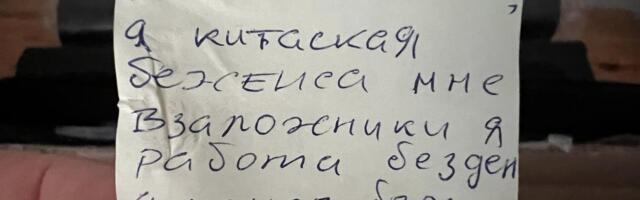 я китаская
беженса мне
взаложники я
работа безден